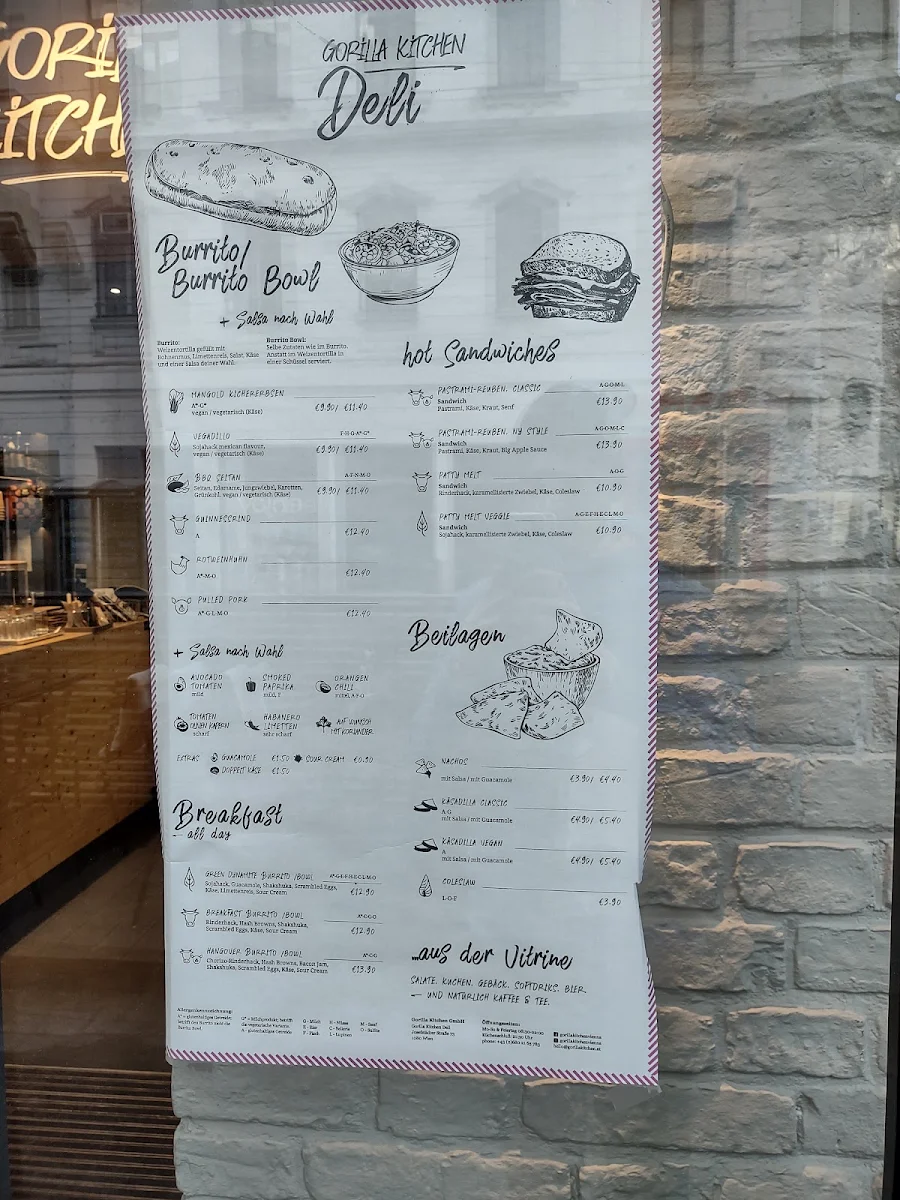 GORILLA KITCHEN
Deli
Burrito/
Burrito Bowl
+ Salsa nach Wahl
Burrito:
Weizentortilla gefüllt mit
Bohnenmus, Limettenreis, Salat, Käse
und einer Salsa deiner Wahl.
Burrito Bowl:
Selbe Zutaten wie im Burrito.
Anstatt im Weizentortilla in
einer Schüssel serviert.
MANGOLD KICHERERBSEN
A*-G*
vegan / vegetarisch (Käse) €9.90/ €11.40
VEGADILLO F-H-O-A*-G*
Sojahack mexican flavour,
vegan / vegetarisch (Käse) €9.90/ €11.40
BBQ SEITAN A-F-N-M-O
Seitan, Edamame, Jungzwiebel, Karotten,
Grünkohl, vegan / vegetarisch (Käse) €9.90/ €11.40
GUINNESSRIND
A €12.40
ROTWEINHUHN
A*-M-O €12.40
PULLED PORK
A*-G-L-M-O €12.40
+ Salsa nach Wahl
AVOCADO
TOMATEN
mild
SMOKED
PAPRIKA
mild, F
ORANGEN
CHILI
TOMATEN
OLIVEN KAPERN
scharf
HABANERO
LIMETTEN
sehr scharf
AUF WUNSCH
MIT KORIANDER
EXTRAS GUACAMOLE €1.50 SOUR CREAM €0.90
DOPPELT KÄSE €1.50
Breakfast
- all day
GREEN DYNAMITE BURRITO /BOWL A*-G-E-F-H-E-C-L-M-O
Sojahack, Guacamole, Shakshuka, Scrambled Eggs,
Käse, Limettenreis, Sour Cream €12.90
BREAKFAST BURRITO /BOWL
Rinderhack, Hash Browns, Shakshuka,
Scrambled Eggs, Käse, Sour Cream €12.90
HANGOVER BURRITO /BOWL
Chorizo-Rinderhack, Hash Browns, Bacon Jam,
Shakshuka, Scrambled Eggs, Käse, Sour Cream €13.90
hot Sandwiches
PASTRAMI-REUBEN. CLASSIC A-G-O-M-L
Sandwich €13.90
Pastrami, Käse, Kraut, Senf
PASTRAMI-REUBEN. NY STYLE A-G-O-M-L-C
Sandwich €13.90
Pastrami, Käse, Kraut, Big Apple Sauce
PATTY MELT A-O-G
Sandwich €10.90
Rinderhack, karamellisierte Zwiebel, Käse, Coleslaw
PATTY MELT VEGGIE A-G-E-F-H-E-C-L-M-O
Sandwich €10.90
Sojahack, karamellisierte Zwiebel, Käse, Coleslaw
Beilagen
NACHOS
mit Salsa / mit Guacamole €3.90/ €4.40
KÄSADILLA CLASSIC
A-G
mit Salsa / mit Guacamole €4.90/ €5.40
KÄSADILLA VEGAN
A
mit Salsa / mit Guacamole €4.90/ €5.40
COLESLAW
L-O-F €3.90
...aus der Vitrine
SALATE. KUCHEN. GEBÄCK. SOFTDRIKS. BIER.
— UND NATÜRLICH KAFFEE & TEE.
Gorilla Kitchen GmbH
Gorilla Kitchen Deli
Josefstädter Straße 73
1080 Wien
Öffnungszeiten:
gorillakitchenvienna
gorillakitchenvienna
hello@gorillakitchen.at